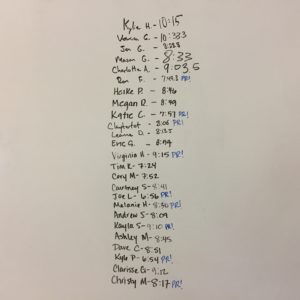 Kyle H - 10:15
G. - 10:383
Jen G. - 8:288
Mason G. - 8:33
Charlotte A. - 9:03.5
Ron E. - PR!
Heike P. - 8:46
Megan R. - 8:49
Katie C. - 7:57 PR!
- 8:08 PR!
Leanne D. -
Eric G. - 8:44
Virginia H - 9:15 PR!
Tim R - 7:24
Cory M - 7:52
Courtney S - 8:41
Joe L - 6:56 PR!
Melanie H - 8:30 PR!
Andrew S - 8:09
Kayla S - 9:10 PR!
Ashley M - 8:45
Dave C - 8:51
Kyle P - 6:54 PR!
Clarisse G - 9:12
Christy M - 8:17 PR!